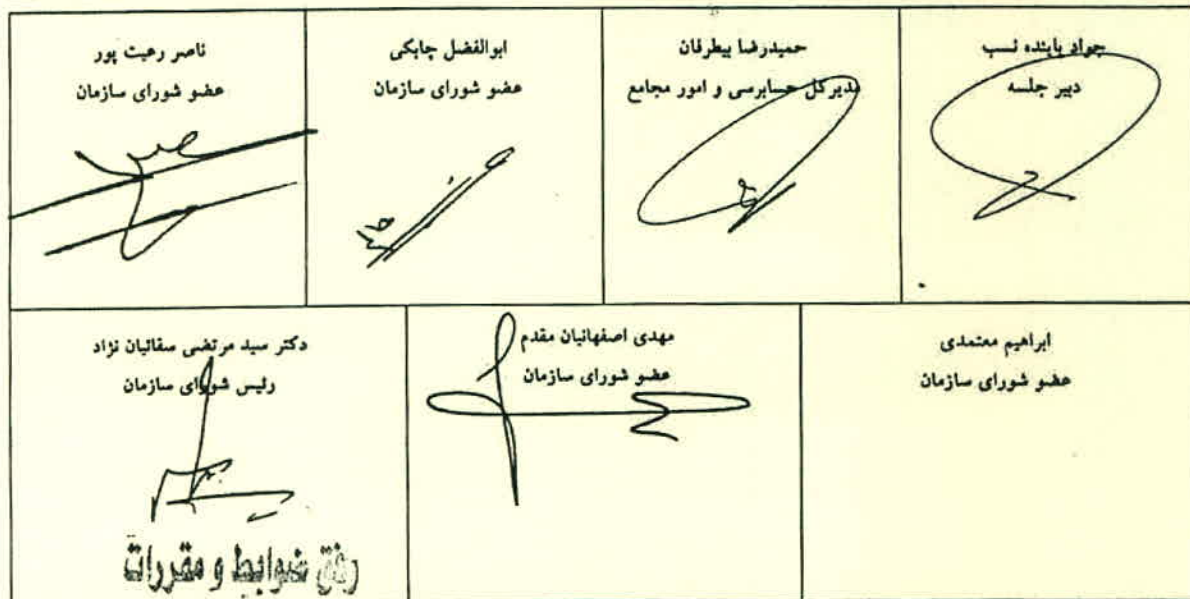 جواد پاینده نسب
دبیر جلسه
حمیدرضا بیطرفان
مدیرکل حسابرسی و امور مجامع
ابوالفضل چابکی
عضو شورای سازمان
ناصر رعیت پور
عضو شورای سازمان
ابراهیم معتمدی
عضو شورای سازمان
مهدی اصفهانیان مقدم
عضو شورای سازمان
دکتر سید مرتضی سقائیان نژاد
رئیس شورای سازمان
وفق ضوابط و مقررات